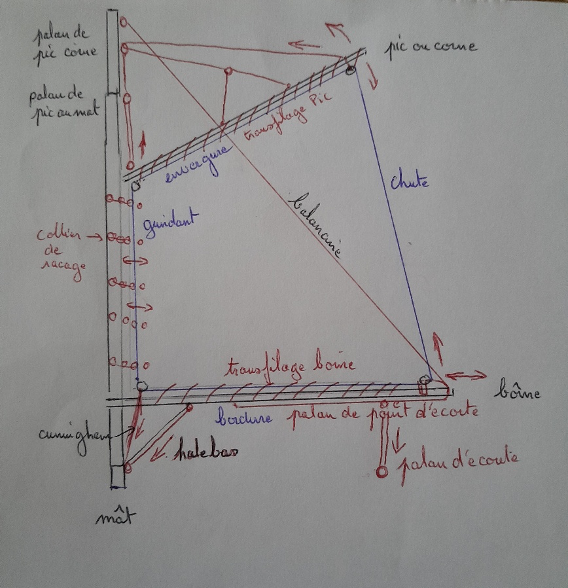 palan de
pic corne
pic ou corne
palan de
pic au mat
transfilage Pic
envergure
chute
guindant
balancine
collier
de
racage
transfilage bome
bôme
bordure
palan de point d'ecoute
cuningham
halebas
palan d'écoute
mât